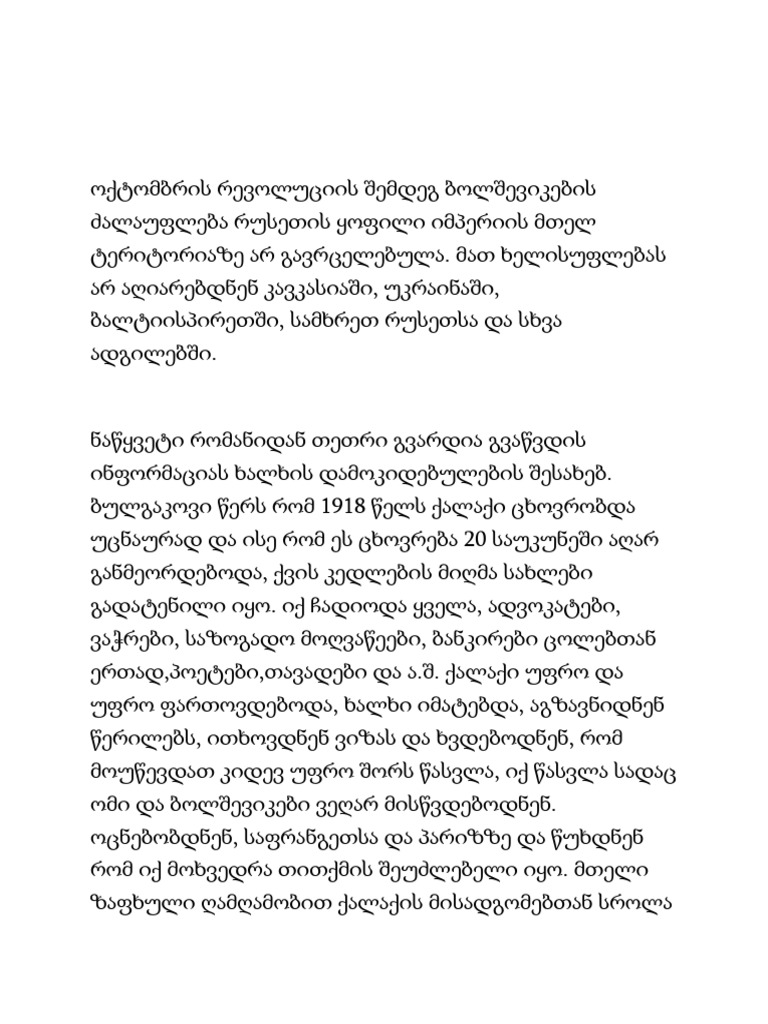 ოქტომბრის რევოლუციის შემდეგ ბოლშევიკების
ძალაუფლება რუსეთის ყოფილი იმპერიის მთელ
ტერიტორიაზე არ გავრცელებულა. მათ ხელისუფლებას
არ აღიარებდნენ კავკასიაში, უკრაინაში,
ბალტიისპირეთში, სამხრეთ რუსეთსა და სხვა
ადგილებში.
ნაწყვეტი რომანიდან თეთრი გვარდია გვაწვდის
ინფორმაციას ხალხის დამოკიდებულების შესახებ.
ბულგაკოვი წერს რომ 1918 წელს ქალაქი ცხოვრობდა
უცნაურად და ისე რომ ეს ცხოვრება 20 საუკუნეში აღარ
განმეორდებოდა, ქვის კედლების მიღმა სახლები
გადატენილი იყო. იქ ჩადიოდა ყველა, ადვოკატები,
ვაჭრები, საზოგადო მოღვაწეები, ბანკირები ცოლებთან
ერთად,პოეტები,თავადები და ა.შ. ქალაქი უფრო და
უფრო ფართოვდებოდა, ხალხი იმატებდა, აგზავნიდნენ
წერილებს, ითხოვდნენ ვიზას და ხვდებოდნენ, რომ
მოუწევდათ კიდევ უფრო შორს წასვლა, იქ წასვლა სადაც
ომი და ბოლშევიკები ვეღარ მისწვდებოდნენ.
ოცნებობდნენ, საფრანგეთსა და პარიზზე და წუხდნენ
რომ იქ მოხვედრა თითქმის შეუძლებელი იყო. მთელი
ზაფხული ღამღამობით ქალაქის მისადგომებთან სროლა